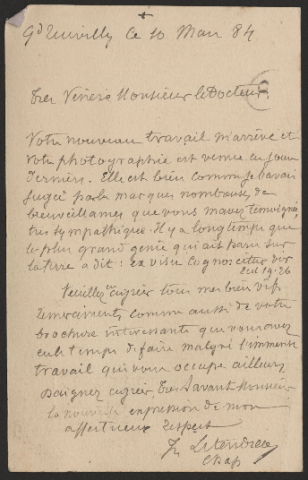 Gd Neuvilly ce 10 Mars 84
Très Vénéré Monsieur le Docteur
Votre nouveau travail m'arrive et
votre photographie est venue ces jours
derniers. Elle est bien comme je l'avais
jugée par les marques nombreuses de
bienveillances que vous m'avez témoignées
très sympathique. Il y a longtemps que
le plus grand génie qui ait paru sur
la terre a dit : ex visu cognoscitur vir
Eccl 19-26
Veuillez agréer tous mes bien vifs
remerciements comme aussi de votre
brochure intéressante que vous avez
eu le temps de faire malgré l'immense
travail qui vous occupe ailleurs
Daignez agréer très Savant Monsieur
la nouvelle expression de mon
affectueux respect
Letendre
Chap